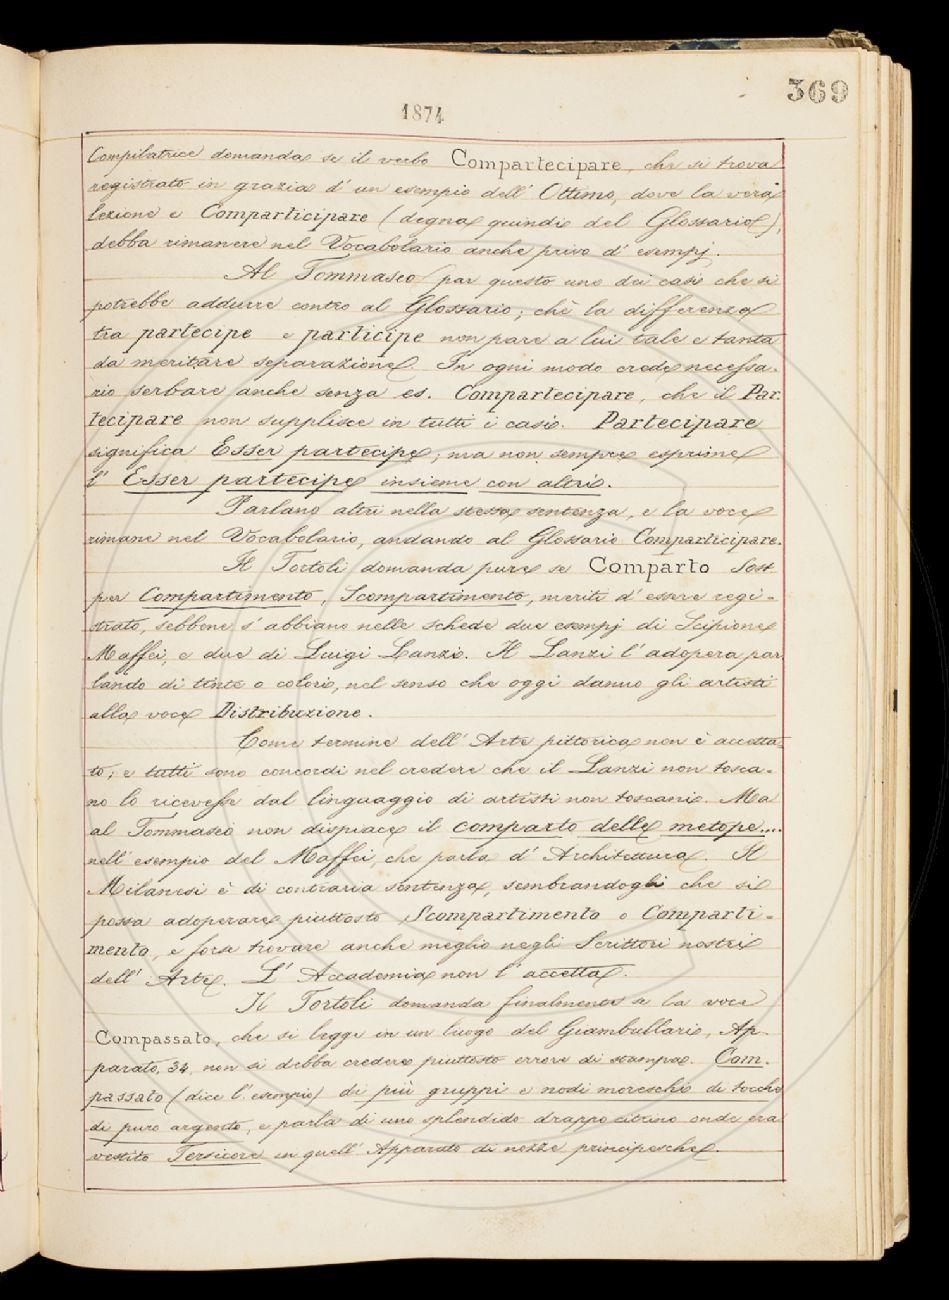 369
1874
Compilatrice domanda se il verbo Compartecipare, che si trova
registrato in grazia d' un esempio dell' Ottimo, dove la vera
lezione è Comparticipare (degna quindi del Glossario),
debba rimanere nel Vocabolario anche privo d' esempj.
Al Tommaseo par questo uno dei casi che si
potrebbe addurre contro al Glossario; chè la differenza
tra partecipe e participe non pare a lui tale e tanta
da meritare separazione. In ogni modo crede necessa-
rio serbare anche senza es. Compartecipare, che il Par-
tecipare non supplisce in tutti i casi. Partecipare
significa Esser partecipe; ma non sempre esprime
l' Esser partecipe insieme con altri.
Parlano altri nella stessa sentenza, e la voce
rimane nel Vocabolario, andando al Glossario Comparticipare.
Il Tortoli domanda pure se Comparto Sost.
per Compartimento, Scompartimento, meriti d' essere regi-
strato, sebbene s' abbiano nelle schede due esempj di Scipione
Maffei, e due di Luigi Lanzi. Il Lanzi l' adopera par-
lando di tinte o colori, nel senso che oggi danno gli artisti
alla voce Distribuzione.
Come termine dell' Arte pittorica non è accetta-
to; e tutti sono concordi nel credere che il Lanzi non tosca-
no lo ricevesse dal linguaggio di artisti non toscani. Ma
al Tommaseo non dispiace il comparto delle metope....
nell' esempio del Maffei, che parla d' Architettura. Il
Milanesi è di contraria sentenza, sembrandogli che si
possa adoperare piuttosto Scompartimento o Comparti-
mento, e forse trovare anche meglio negli Scrittori nostri
dell' Arte. L' Accademia non l' accetta.
Il Tortoli domanda finalmente se la voce
Compassato, che si legge in un luogo del Giambullari, Ap-
parato, 34, non si debba credere piuttosto errore di stampa. Com-
passato (dice l' esempio) di più gruppi e nodi moreschi di tocche
di puro argento, e parla di uno splendido drappo citrino onde era
vestita Tersicore in quell' Apparato di nozze principesche.